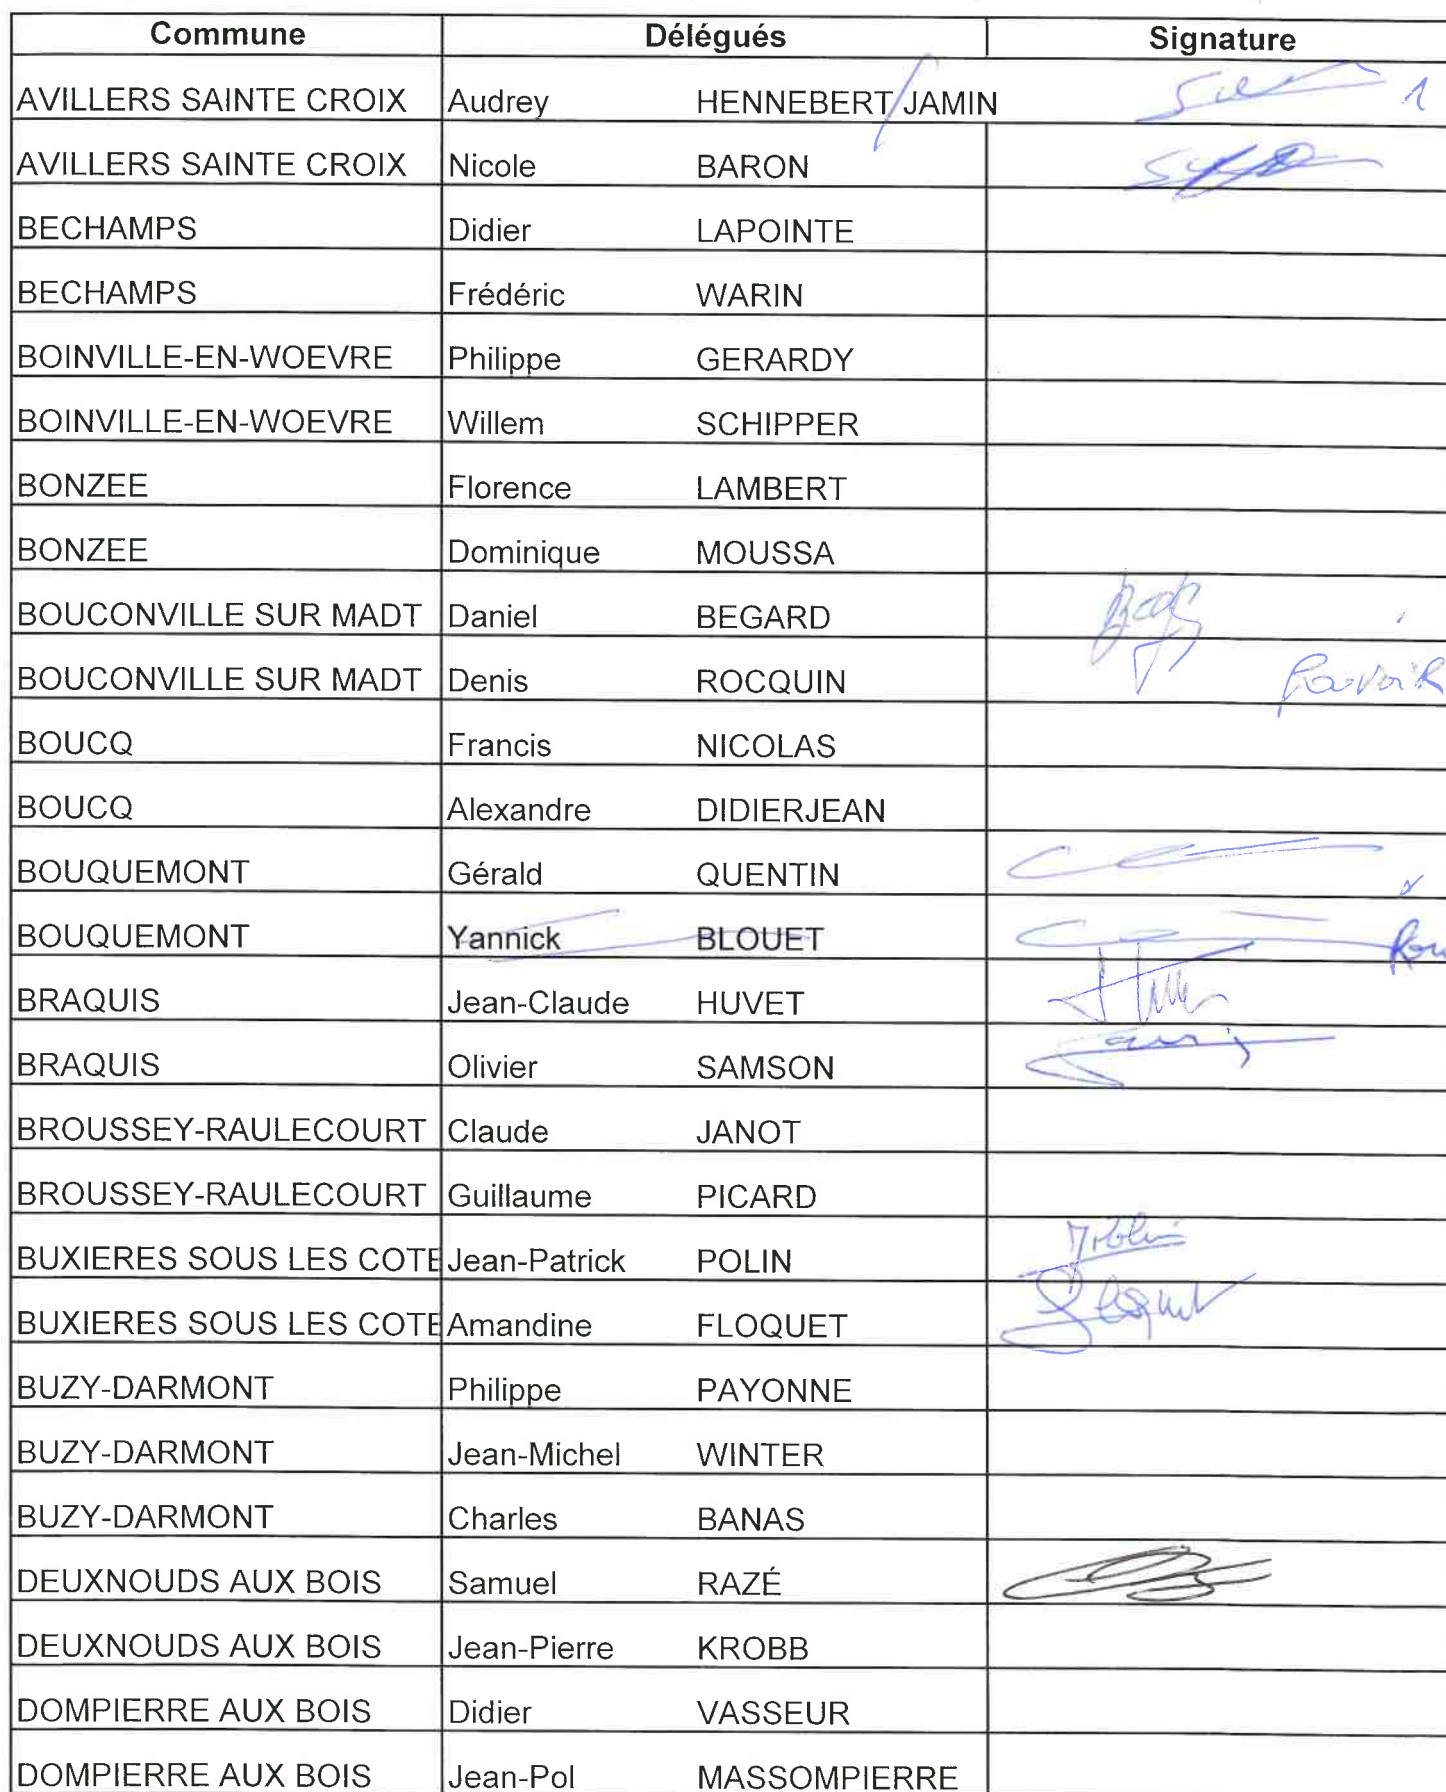 Commune Délégués Signature
AVILLERS SAINTE CROIX Audrey HENNEBERT/JAMIN 1
AVILLERS SAINTE CROIX Nicole BARON
BECHAMPS Didier LAPOINTE
BECHAMPS Frédéric WARIN
BOINVILLE-EN-WOEVRE Philippe GERARDY
BOINVILLE-EN-WOEVRE Willem SCHIPPER
BONZEE Florence LAMBERT
BONZEE Dominique MOUSSA
BOUCONVILLE SUR MADT Daniel BEGARD
BOUCONVILLE SUR MADT Denis ROCQUIN Pouvoir
BOUCQ Francis NICOLAS
BOUCQ Alexandre DIDIERJEAN
BOUQUEMONT Gérald QUENTIN
BOUQUEMONT Yannick BLOUET Pou
BRAQUIS Jean-Claude HUVET
BRAQUIS Olivier SAMSON
BROUSSEY-RAULECOURT Claude JANOT
BROUSSEY-RAULECOURT Guillaume PICARD
BUXIERES SOUS LES COTE Jean-Patrick POLIN
BUXIERES SOUS LES COTE Amandine FLOQUET
BUZY-DARMONT Philippe PAYONNE
BUZY-DARMONT Jean-Michel WINTER
BUZY-DARMONT Charles BANAS
DEUXNOUDS AUX BOIS Samuel RAZÉ
DEUXNOUDS AUX BOIS Jean-Pierre KROBB
DOMPIERRE AUX BOIS Didier VASSEUR
DOMPIERRE AUX BOIS Jean-Pol MASSOMPIERRE